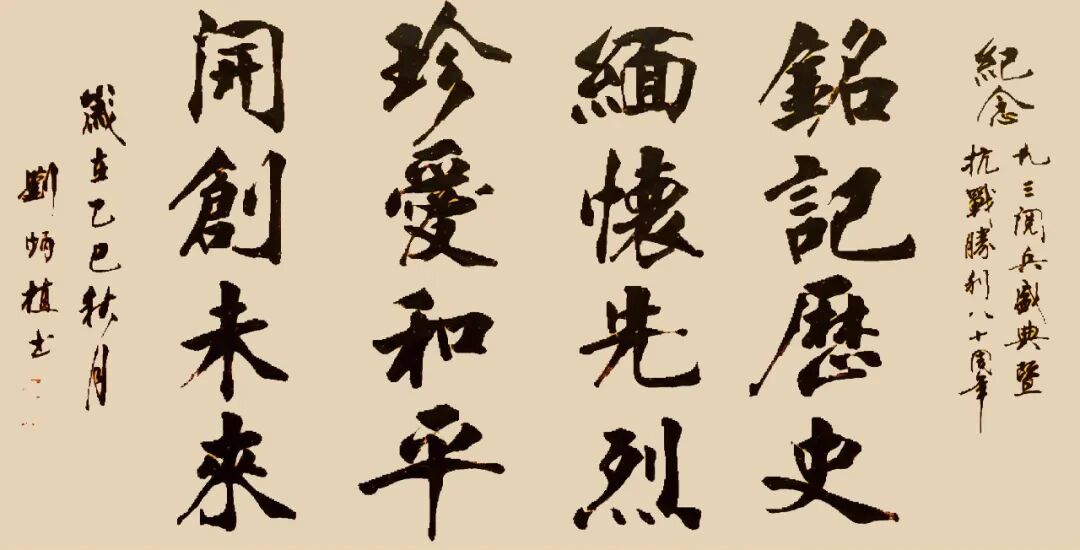 紀念
九三閱兵盛典暨
抗戰勝利八十周年
銘記歷史
緬懷先烈
珍愛和平
開創未來
歲在乙巳秋月
劉炳植书